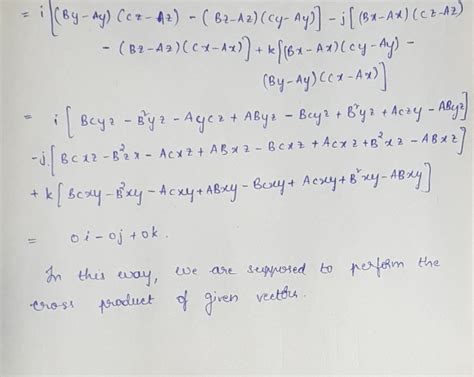 = i [(By-Ay)(Cz-Az) - (Bz-Az)(Cy-Ay)] - j[(Bx-Ax)(Cz-Az)
- (Bz-Az)(Cx-Ax)] + k[(Bx-Ax)(Cy-Ay) -
(By-Ay)(Cx-Ax)]
= i [Bcyz - B²yz - Aycz + AByz - Bcyz + B²yz + Aczy - AByz]
-j [Bcxz - B²zx - Acxz + ABxz - Bcxz + Acxz + B²xz - ABxz]
+ k [Bcxy - B²xy - Acxy + ABxy - Bcxy + Acxy + B²xy - ABxy]
= 0i - 0j + 0k.
In this way, we are supposed to perform the
cross product of given vectors.